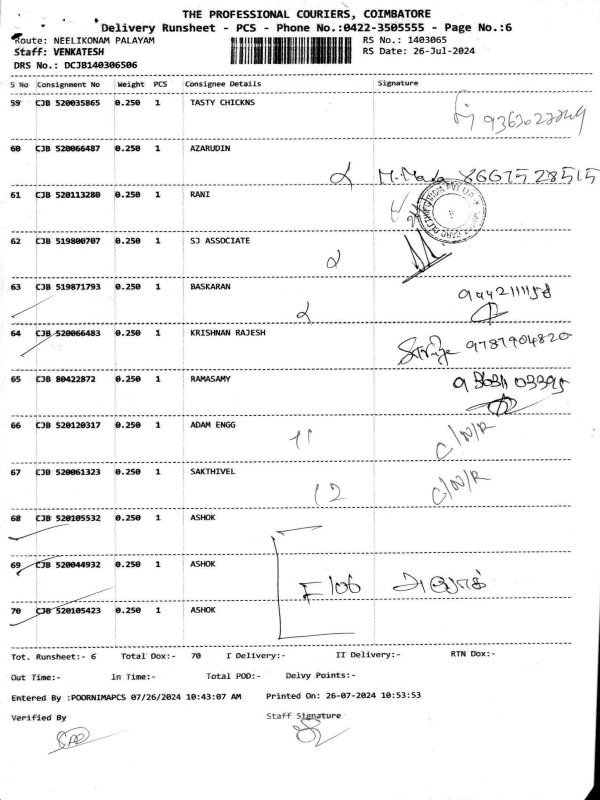 THE PROFESSIONAL COURIERS, COIMBATORE
Delivery Runsheet - PCS - Phone No.:0422-3505555 - Page No.:6
Route: NEELIKONAM PALAYAM RS No.: 1403065
Staff: VENKATESH RS Date: 26-Jul-2024
DRS No.: DCJB140306506
S No Consignment No Weight PCS Consignee Details Signature
59 CJB 520035865 0.250 1 TASTY CHICKNS
60 CJB 520066487 0.250 1 AZARUDIN
86675 28515
61 CJB 520113280 0.250 1 RANI
62 CJB 519800707 0.250 1 SJ ASSOCIATE
63 CJB 519871793 0.250 1 BASKARAN
9442111158
64 CJB 520066483 0.250 1 KRISHNAN RAJESH
9787904820
65 CJB 80422872 0.250 1 RAMASAMY
66 CJB 520120317 0.250 1 ADAM ENGG
11 C/N/R
67 CJB 520061323 0.250 1 SAKTHIVEL
12 C/N/R
68 CJB 520105532 0.250 1 ASHOK
69 CJB 520044932 0.250 1 ASHOK
அசோக்
70 CJB 520105423 0.250 1 ASHOK
Tot. Runsheet:- 6 Total Dox:- 70 I Delivery:- II Delivery:- RTN Dox:-
Out Time:- In Time:- Total POD:- Delvy Points:-
Entered By :POORNIMAPCS 07/26/2024 10:43:07 AM Printed On: 26-07-2024 10:53:53
Verified By Staff Signature